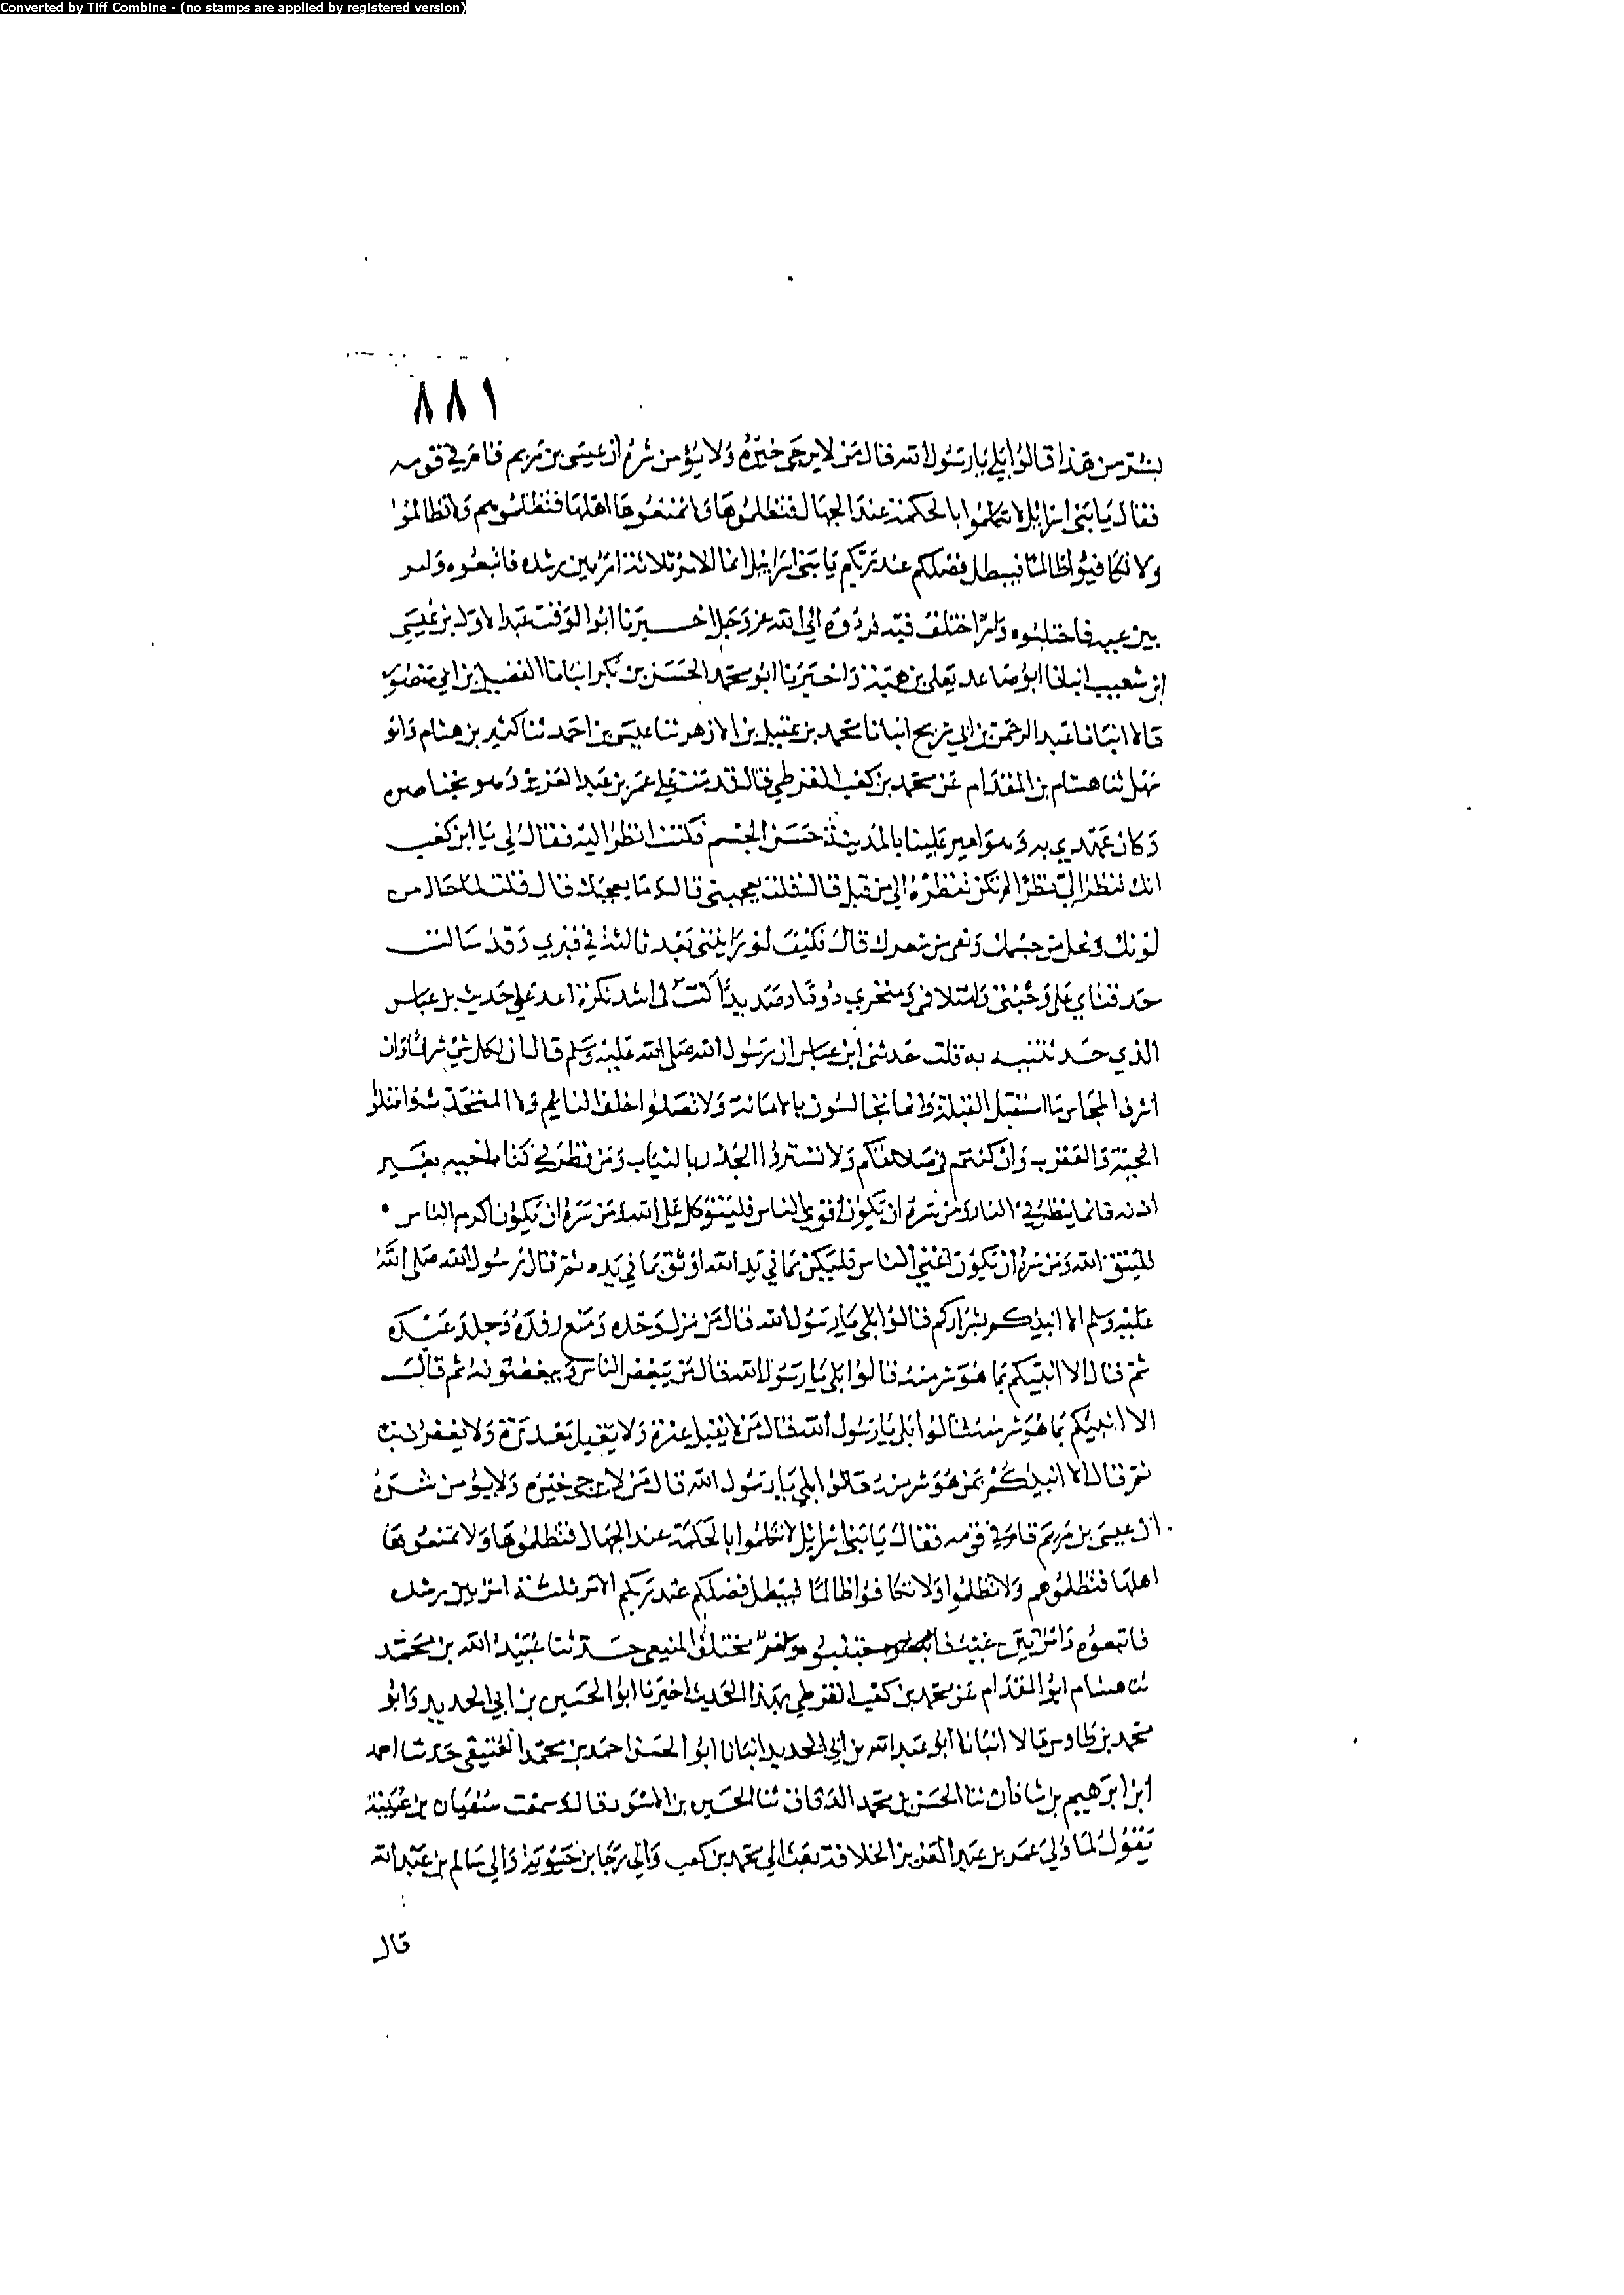 Converted by Tiff Combine - (no stamps are applied by registered version)
٨٨١
بشر من هذا قالوا بلى يا رسول الله قال من لا يرجى خيره ولا يؤمن شره ان عيسى بن مريم قام في قومه
فقال يا بني اسرائيل لا تتكلموا بالحكمة عند الجهال فتظلموها ولا تمنعوها اهلها فتظلموهم ولا تظالموا
ولا تكافيوا ظالما فيبطل فضلكم عند ربكم يا بني اسرائيل انما الامر ثلاثة امر بين رشده فاتبعوه وامر
بين غيه فاجتنبوه وامر اختلف فيه فردوه الى الله عز وجل اخبرنا ابو الوقت عبد الاول بن عيسى
ابن شعيب انبانا ابو صاعد يعلى بن هبة واخبرنا ابو محمد الحسن بن بكر انبانا الفضيل بن ابي منصور
قالا انبانا عبد الرحمن بن ابي شريح انبانا محمد بن عقيل بن الازهر ثنا عيسى بن احمد ثنا كثير بن هشام وابو
ثنا هشام بن المقدام عن محمد بن كعب القرظي قال قدمت على عمر بن عبد العزيز وهو بخناصره
وكان عهدي به وهو امير علينا بالمدينة حسن الجسم فكنت انظر اليه فقال لي يا ابن كعب
انك تنظر الي نظرا لم تكن تنظره الي من قبل قال فقلت يعجبني قال وما يعجبك قال فقلت لما حال من
لونك ونحل من جسمك ونفى من شعرك قال فكيف لو رايتني بعد ثالثة في قبري وقد سالت
حدقتاي على وجنتي وامتلا فمي ومنخري دودا وصديدا كنت لي اشد نكرة اعد علي حديث بن عباس
الذي حدثتنيه به قلت حدثني ابن عباس ان رسول الله صلى الله عليه وسلم قال ان لكل شي شرفا وان
اشرف المجالس ما استقبل القبلة وانما تجالسون بالامانة ولا تصلوا خلف النائم ولا المتحدث واقتلوا
الحية والعقرب وان كنتم في صلاتكم ولا تستروا الجدر بالثياب ومن نظر في كتاب اخيه بغير
اذنه فانما ينظر في النار ومن سره ان يكون اقوى الناس فليتوكل على الله ومن سره ان يكون اكرم الناس
فليتق الله ومن سره ان يكون اغنى الناس فليكن بما في يد الله اوثق بما في يده ثم قال رسول الله صلى الله
عليه وسلم الا انبيكم بشراركم قالوا بلى يا رسول الله قال من نزل وحده ومنع رفده وجلد عبده
ثم قال الا انبيكم بما هو شر منه قالوا بلى يا رسول الله قال من يبغض الناس ويبغضونه ثم قال
الا انبيكم بما هو شر منه قالوا بلى يا رسول الله قال من لا يقيل عثرة ولا يقبل معذرة ولا يغفر ذنبا
ثم قال الا انبيكم بمن هو شر منه قالوا بلى يا رسول الله قال من لا يرجى خيره ولا يؤمن شره
ان عيسى بن مريم قام في قومه فقال يا بني اسرايل لا تتكلموا بالحكمة عند الجهال فتظلموها ولا تمنعوها
اهلها فتظلموهم ولا تظلموا ولا تكافوا ظالما فيبطل فضلكم عند ربكم الامر ثلثة امر بين رشده
فاتبعوه وامر بين غيه فاجتنبوه وامر يختلف المنيعي حدثنا عبيد الله بن محمد
ثنا هشام ابو المقدام عن محمد بن كعب القرظي بهذا الحديث اخبرنا ابو الحسين بن ابي الحديد وابو
محمد بن طاوس قالا انبانا ابو عبد الله بن ابي الحديد انبانا ابو الحسن احمد بن محمد العتيقي حدثنا احمد
ابن ابرهيم بن شاذان ثنا الحسن بن محمد ثنا الحسين بن قال سمعت سفيان بن عيينة
يقول لما ولي عمر بن عبد العزيز الخلافة بعث الى محمد بن كعب والى رجا بن حيوية والى سالم بن عبد الله
قال